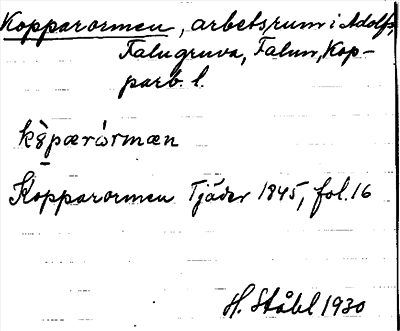 Kopparormen, arbetsrum i Adolfs,
Falu gruva, Falun, Kop-
parb. l.
kòpærórmæn
Kopparormen Tjäder 1845, fol. 16
H. Ståhl 1930